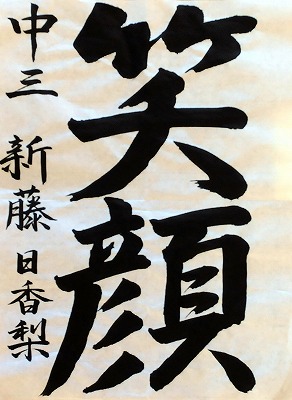 笑顔
中三 新藤日香梨